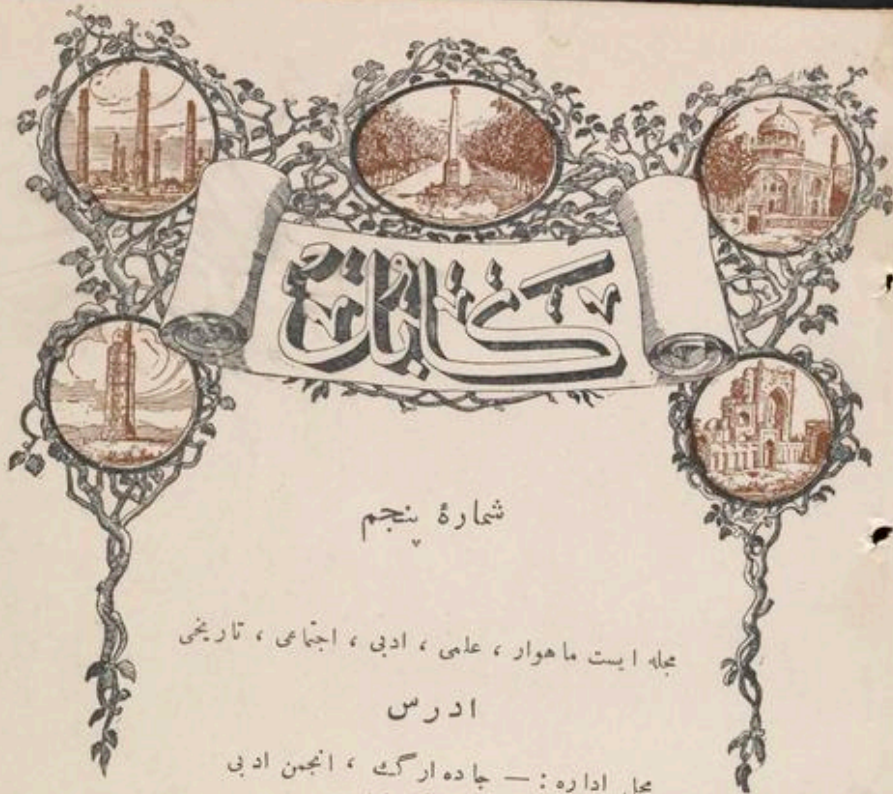 کابل
شمارهٔ پنجم
مجله ایست ماهوار ، علمی ، ادبی ، اجتماعی ، تاریخی
ادرس
محل اداره : — جاده ارگ ، انجمن ادبی